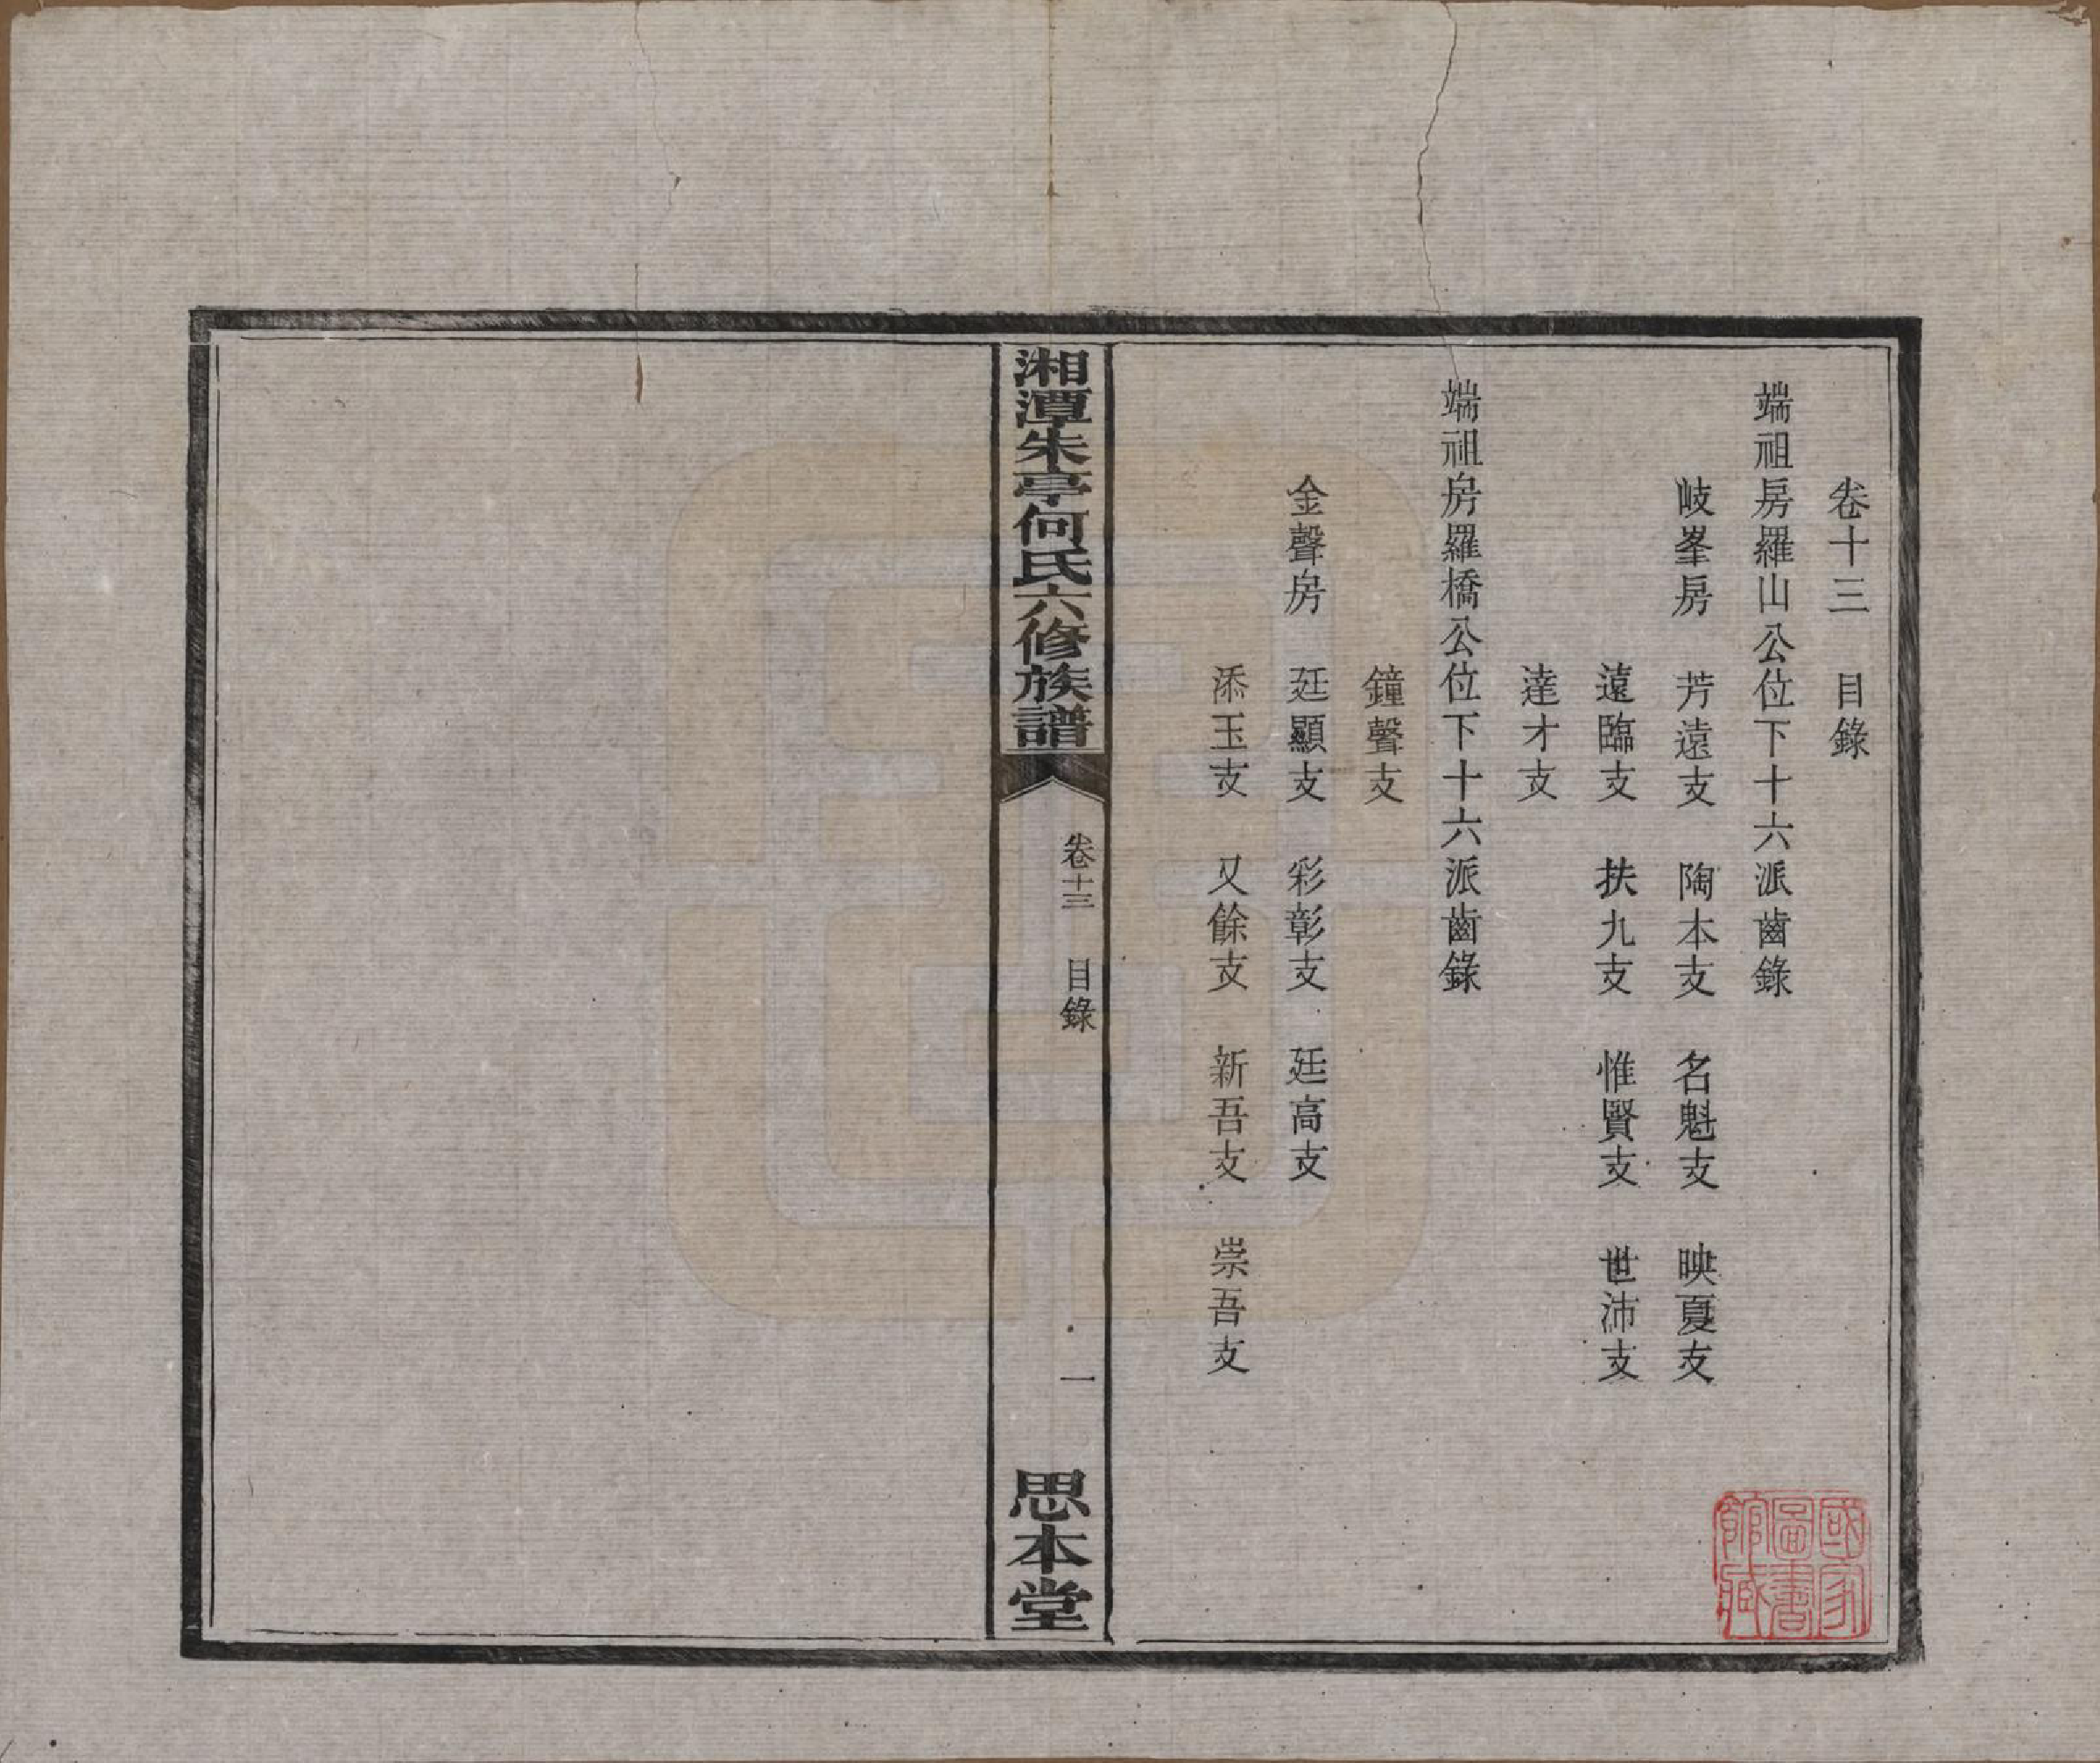 卷十三　目錄
端祖房羅山公位下十六派齒錄
岐峯房　芳遠支　陶本支　名魁支　映夏支
遠臨支　扶九支　惟賢支　世沛支
達才支
端祖房羅橋公位下十六派齒錄
鐘聲支
金聲房　廷顯支　彩彰支　廷高支
添玉支　又餘支　新吾支　崇吾支
湘潭朱亭何氏六修族譜
卷十三　目錄
一
思本堂
國家
圖書
館藏